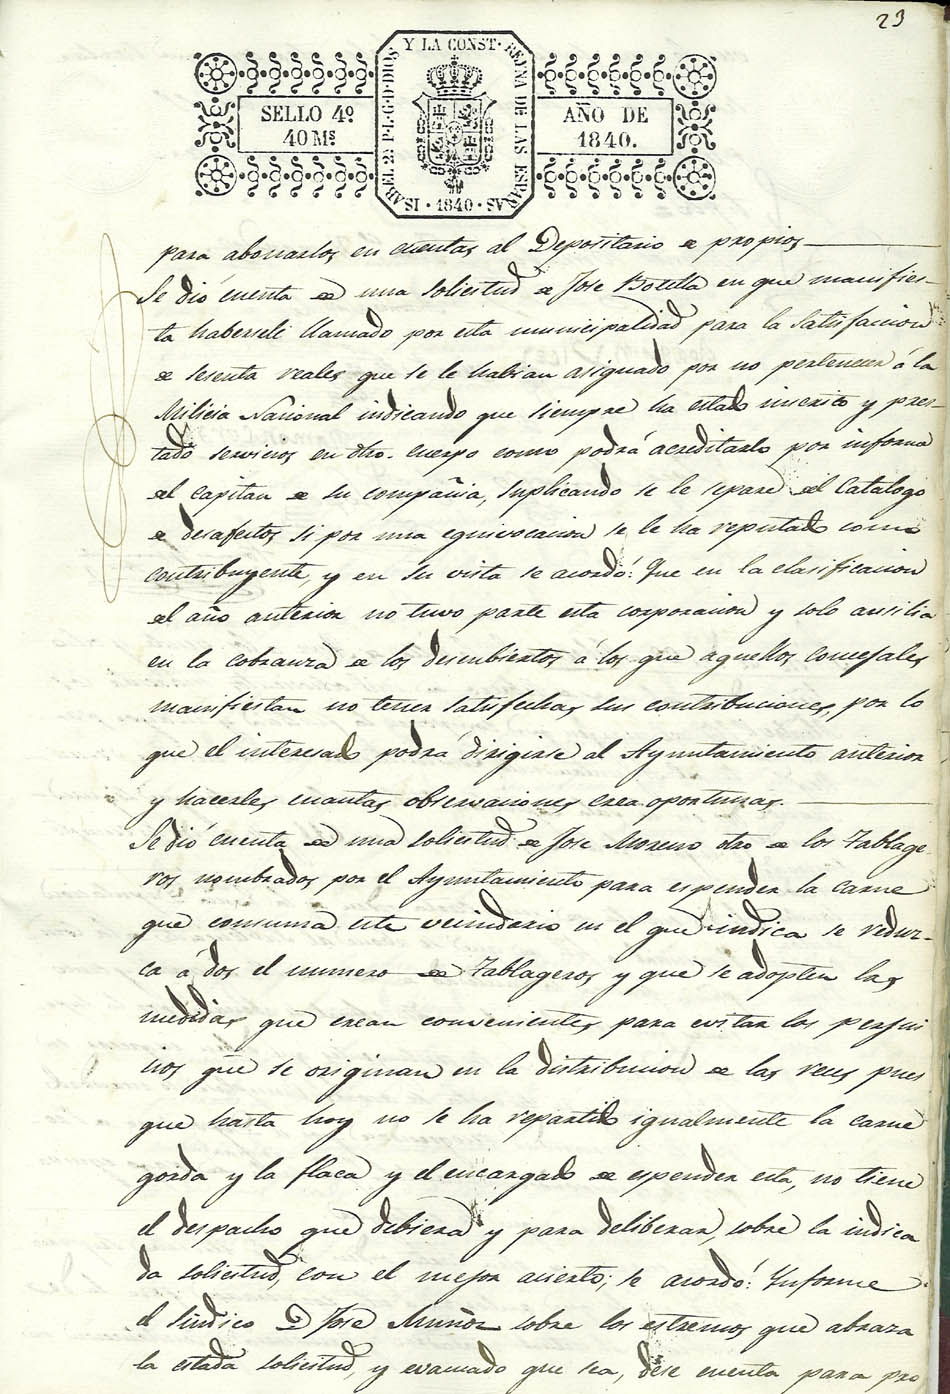 23
ISABEL 2ª P. L. G. D. DIOS Y LA CONST. REYNA DE LAS ESPAÑAS
SELLO 4º
40 Ms
AÑO DE
1840.
· 1840 ·
para abonarlos en cuentas al Depositario de propios
Se dió cuenta de una solicitud de Jose Botella en que manifies-
ta haversele llamado por esta municipalidad para la satisfaccion
de sesenta reales que se le habian asignado por no pertenecer á la
Milicia Nacional indicando que siempre ha estado inscrito y pres-
tado servicios en dho. cuerpo como podrá acreditarlo por informe
del capitan de su compañia, suplicando se le separe del Catalogo
de desafectos si por una equivocacion se le ha reputado como
contribuyente, y en su vista se acordó: Que en la clasificacion
del año anterior no tuvo parte esta corporacion y solo ausilia
en la cobranza de los descubiertos á los que aquellos concejales
manifiestan no tener satisfechas sus contribuciones, por lo
que el interesado podrá dirigirse al Ayuntamiento anterior
y hacerles cuantas observaciones crea oportunas.
Se dió cuenta de una solicitud de Jose Moreno otro de los Tablage
ros nombrados por el Ayuntamiento para espender la carne
que consuma este vecindario en el que indica se reduz-
ca á dos el numero de Tablageros y que se adopten las
medidas que crean convenientes para evitar los perjui
cios que se originan en la distribucion de las reses pues
que hasta hoy no se ha repartido igualmente la carne
gorda y la flaca y el encargado de espender esta, no tiene
el despacho que debiera y para deliberar, sobre la indica
da solicitud, con el mejor acierto; se acordó: Informe
el Sindico D Jose Muñoz sobre los estremos que abraza
la citada solicitud, y evacuado que sea, dese cuenta para pro